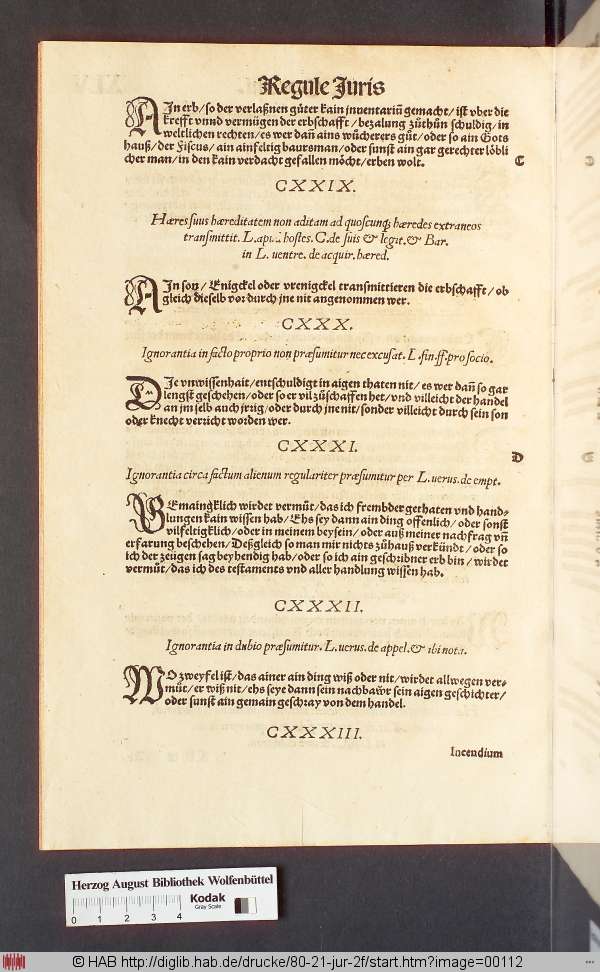 Regule Juris
AJn erb/ so der verlaßnen gůter kain inuentariũ gemacht/ ist vber die
krefft vnnd vermügen der erbschafft/ bezalung zůthůn schuldig/ in
weltlichen rechten/ es wer dañ ains wůcherers gůt/ oder so ain Gots
hauß/ der Fiscus/ ain ainfeltig baursman/ oder sunst ain gar gerechter löbli
cher man/ in den kain verdacht gefallen möcht/ erben wolt.
C
CXXIX.
Hæres suus hæreditatem non aditam ad quoscunq; hæredes extraneos
transmittit. L. apud hostes. C. de suis & legit. & Bar.
in L. uentre. de acquir. hæred.
AJn son/ Enigckel oder vrenigckel transmittieren die erbschafft/ ob
gleich dieselb vor durch jne nit angenommen wer.
CXXX.
Ignorantia in facto proprio non præsumitur nec excusat. L. fin. ff. pro socio.
DJe vnwissenhait/ entschuldigt in aigen thaten nit/ es wer dañ so gar
lengst geschehen/ oder so er vil zůschaffen het/ vnd villeicht der handel
an jm selb auch jrrig/ oder durch jne nit/ sonder villeicht durch sein son
oder knecht verricht worden wer.
CXXXI.
D
Ignorantia circa factum alienum regulariter præsumitur per L. uerus. de empt.
GEmaingklich wirdet vermůt/ das ich frembder gethaten vnd hand-
lungen kain wissen hab/ Ehs sey dann ain ding offenlich/ oder sonst
vilfeltigklich/ oder in meinem beysein/ oder auß meiner nachfrag vñ
erfarung beschehen/ Deßgleich so man mir nichts zůhauß verkündt/ oder so
ich der zeügen sag beyhendig hab/ oder so ich ain geschribner erb bin/ wirdet
vermůt/ das ich des testaments vnd aller handlung wissen hab.
CXXXII.
Ignorantia in dubio præsumitur. L. uerus. de appel. & ibi not.
WO zweyfel ist/ das ainer ain ding wiß oder nit/ wirdet allwegen ver-
můt/ er wiß nit/ ehs seye dann sein nachbawr sein aigen geschichter/
oder sunst ain gemain geschray von dem handel.
CXXXIII.
Incendium
Herzog August Bibliothek Wolfenbüttel
Kodak
Gray Scale
0 1 2 3 4
© HAB http://diglib.hab.de/drucke/80-21-jur-2f/start.htm?image=00112